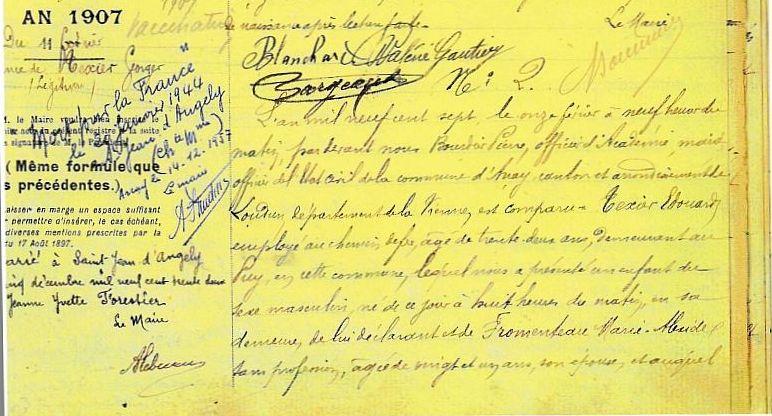 AN 1907
vaccination
Du 11 février
Texier
Georges
(Légitime)
M. le Maire voudra bien
(Même formule que
s précédentes.)
Mort pour la France
le janvier 1944
à St Jean d'Angely
(Ch te Mme)
14-12-1957
Le maire
laisser en marge un espace suffisant
permettre d'insérer, le cas échéant,
diverses mentions prescrites par la
du 17 Août 1897.
arié à Saint Jean d'Angely
cinq décembre mil neuf cent trente deux
Jeanne Yvette Forestier
Le Maire
de naissance après lecture faite.
Le Maire
Blanchard Valérie Gautier
N° 2.
L'an mil neuf cent sept, le onze février à neuf heures du
matin, par devant nous Pierre, officier d'Académie maire
officier de l'état civil de la commune d' canton et arrondissement de
Loudun, département de la Vienne, est comparu Texier Edouard
employé au chemin de fer, âgé de trente deux ans, demeurant au
Puy, en cette commune, lequel nous a présenté un enfant du
sexe masculin, né de ce jour à huit heures du matin, en sa
demeure, de lui déclarant et de Fromenteau Marie-Alcide,
sans profession, âgée de vingt et un ans, son épouse, et auquel